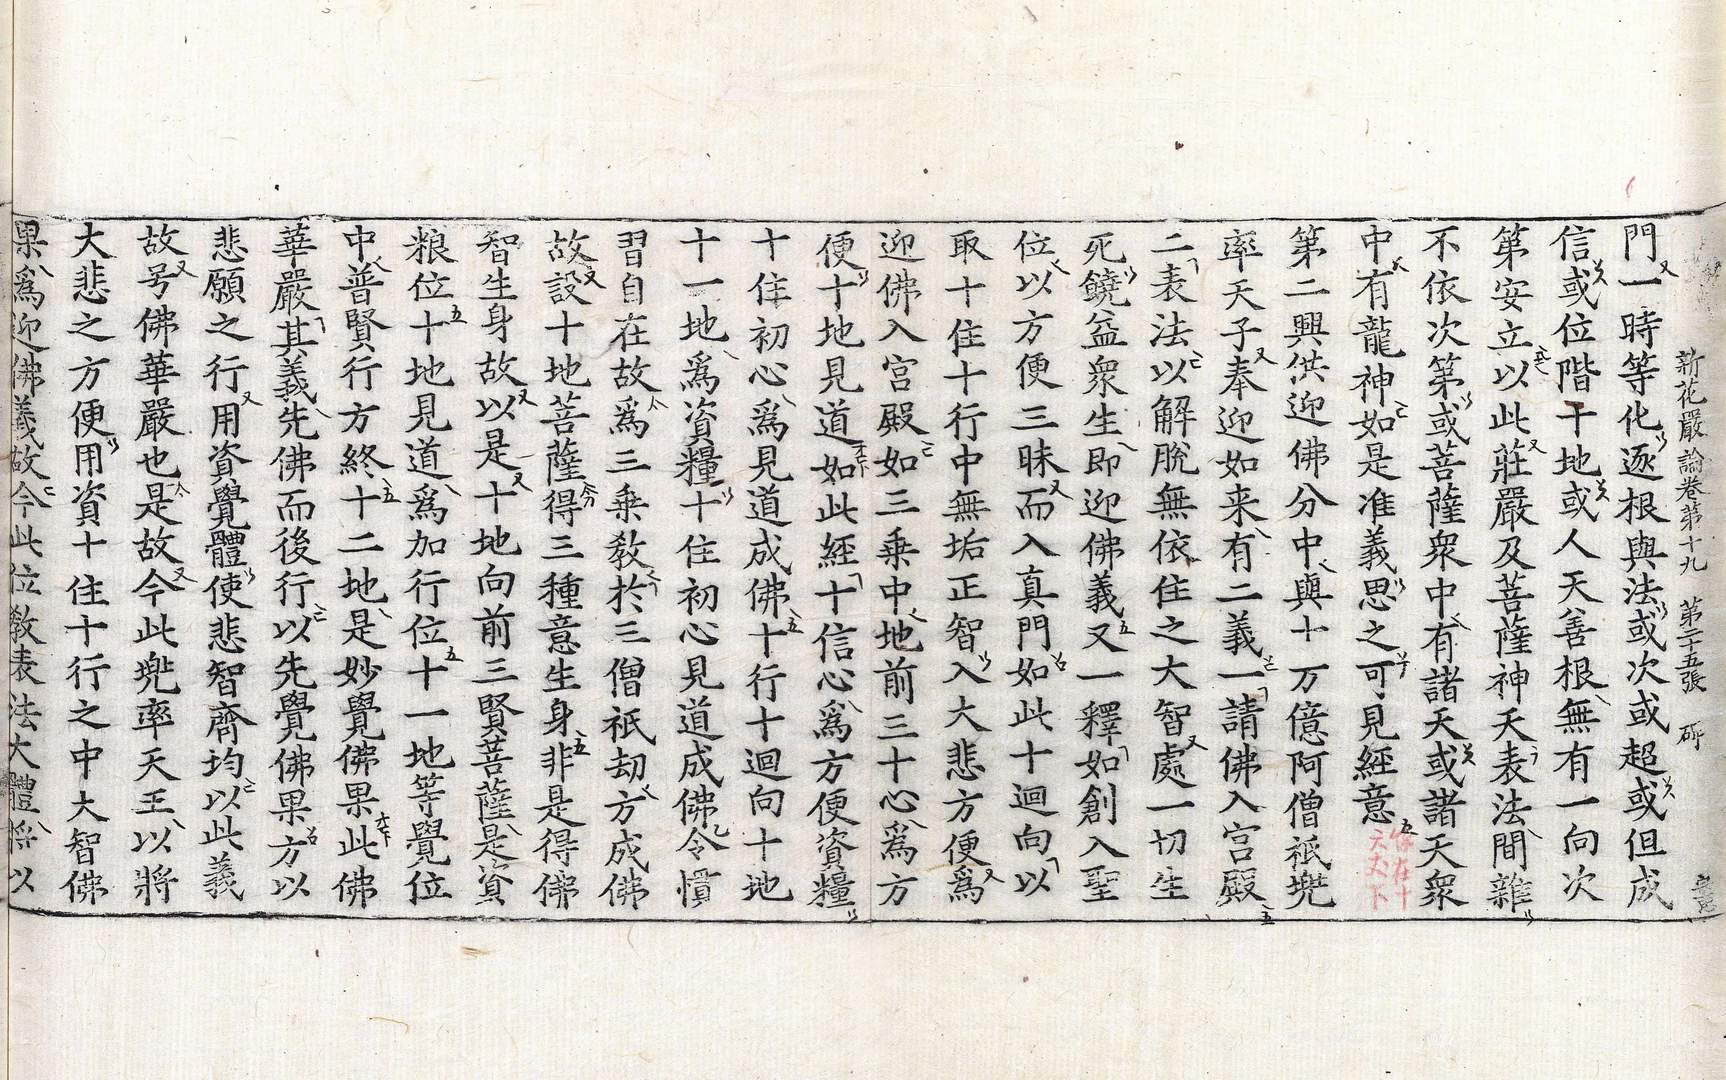 新花嚴論卷第十九 第二十五張
門一時等化逐根與法或次或超或但成
信或位階十地或人天善根無有一向次
第安立以此莊嚴及菩薩神天表法間雜
不依次第或菩薩衆中有諸天或諸天衆
中有龍神如是准義思之可見經意
第二興供迎佛分中與十万億阿僧祇兠
率天子奉迎如来有二義一請佛入宮殿
二表法以解脫無依住之大智處一切生
死饒益衆生即迎佛義又一釋如創入聖
位以方便三昧而入真門如此十迴向以
取十住十行中無垢正智入大悲方便爲
迎佛入宮殿如三乘中地前三十心爲方
便十地見道如此經十信心爲方便資糧
十住初心爲見道成佛十行十迴向十地
十一地爲資糧十住初心見道成佛令慣
習自在故爲三乘教於三僧祇劫方成佛
故設十地菩薩得三種意生身非是得佛
智生身故以是十地向前三賢菩薩是資
粮位十地見道爲加行位十一地等覺位
中普賢行方終十二地是妙覺佛果此佛
華嚴其義先佛而後行以先覺佛果方以
悲願之行用資覺體使悲智齊均以此義
故号佛華嚴也是故今此兠率天王以將
大悲之方便用資十住十行之中大智佛
果爲迎佛義故今此位教表法大體將以